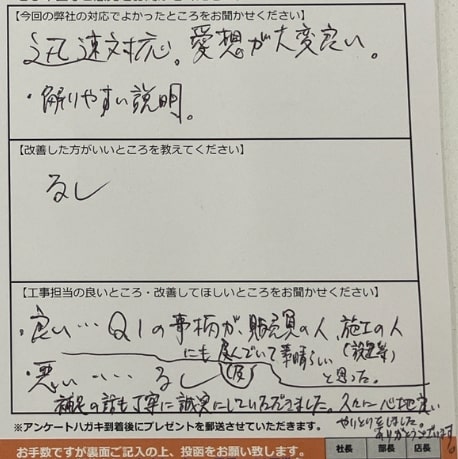 【今回の弊社の対応でよかったところをお聞かせください】
迅速対応。愛想が大変良い。
・解りやすい説明。
【改善した方がいいところを教えてください】
なし
【工事担当の良いところ・改善してほしいところをお聞かせください】
・良い…Q1の事柄が、販売員の人、施工の人
にも及んでいて素晴らしい(設置等)
と思った。
・悪い……なし
補足の話も丁寧に誠実にしていただきました。久々に心地良い
やりとりをしました。
ありがとうございます。
※アンケートハガキ到着後にプレゼントを郵送させていただきます。
お手数ですが裏面ご記入の上、投函をお願い致します。
社長 部長 店長